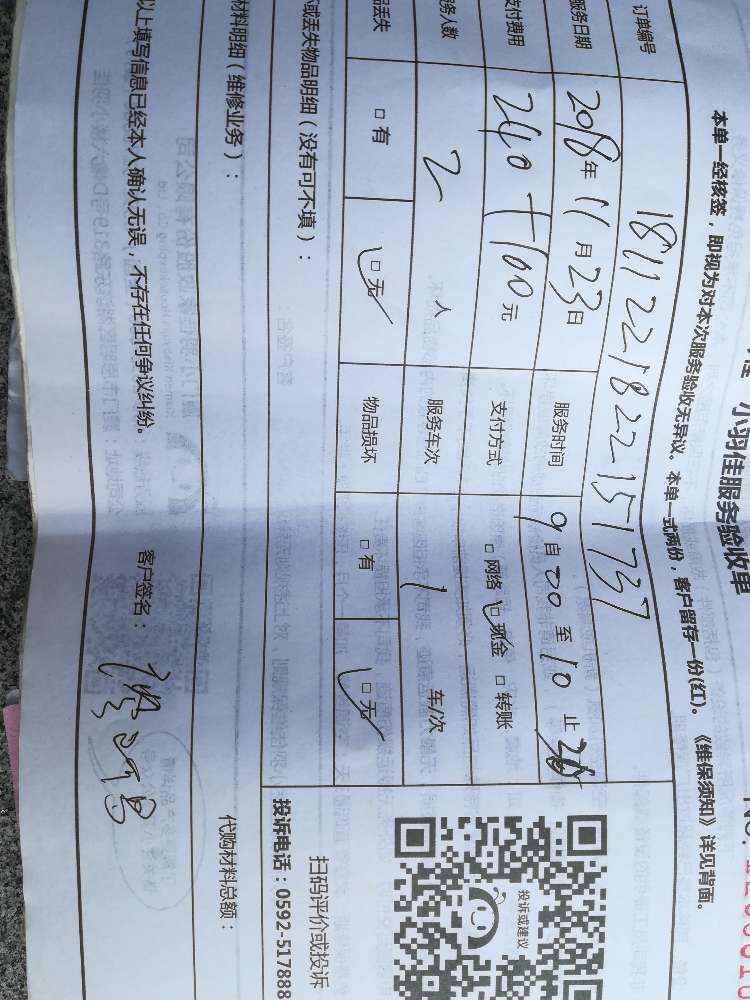 小羽佳服务验收单
本单一经核签，即视为对本次服务验收无异议。本单一式两份，客户留存一份(红)。《维保须知》详见背面。
订单编号 1811221822151737
服务日期 2018年11月23日 服务时间 9自00至10止
支付费用 240+100元 支付方式 □网络 □现金 □转账
务人数 2人 服务车次 1 车/次
丢失 □有 □无 物品损坏 □有 □无
或丢失物品明细（没有可不填）：
材料明细（维修业务）：
代购材料总额：
以上填写信息已经本人确认无误，不存在任何争议纠纷。 客户签名：
投诉或建议
扫码评价或投诉
投诉电话：0592-517888